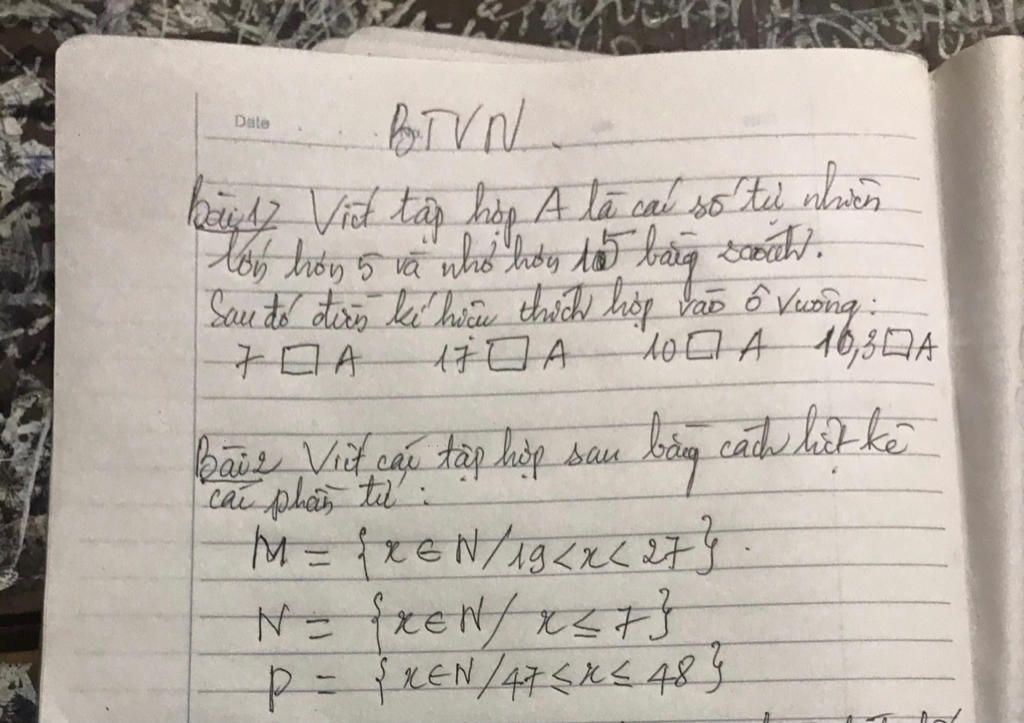 Date
BTVN
Bài 1/ Viết tập hợp A là các số tự nhiên
lớn hơn 5 và nhỏ hơn 15 bằng 2 cách.
Sau đó điền kí hiệu thích hợp vào ô vuông:
7 □ A 17 □ A 10 □ A 10,3 □ A
Bài 2 Viết các tập hợp sau bằng cách liệt kê
các phần tử:
M = {x ∈ N / 19 < x < 27}.
N = {x ∈ N / x ≤ 7}
P = {x ∈ N / 47 ≤ x ≤ 48}